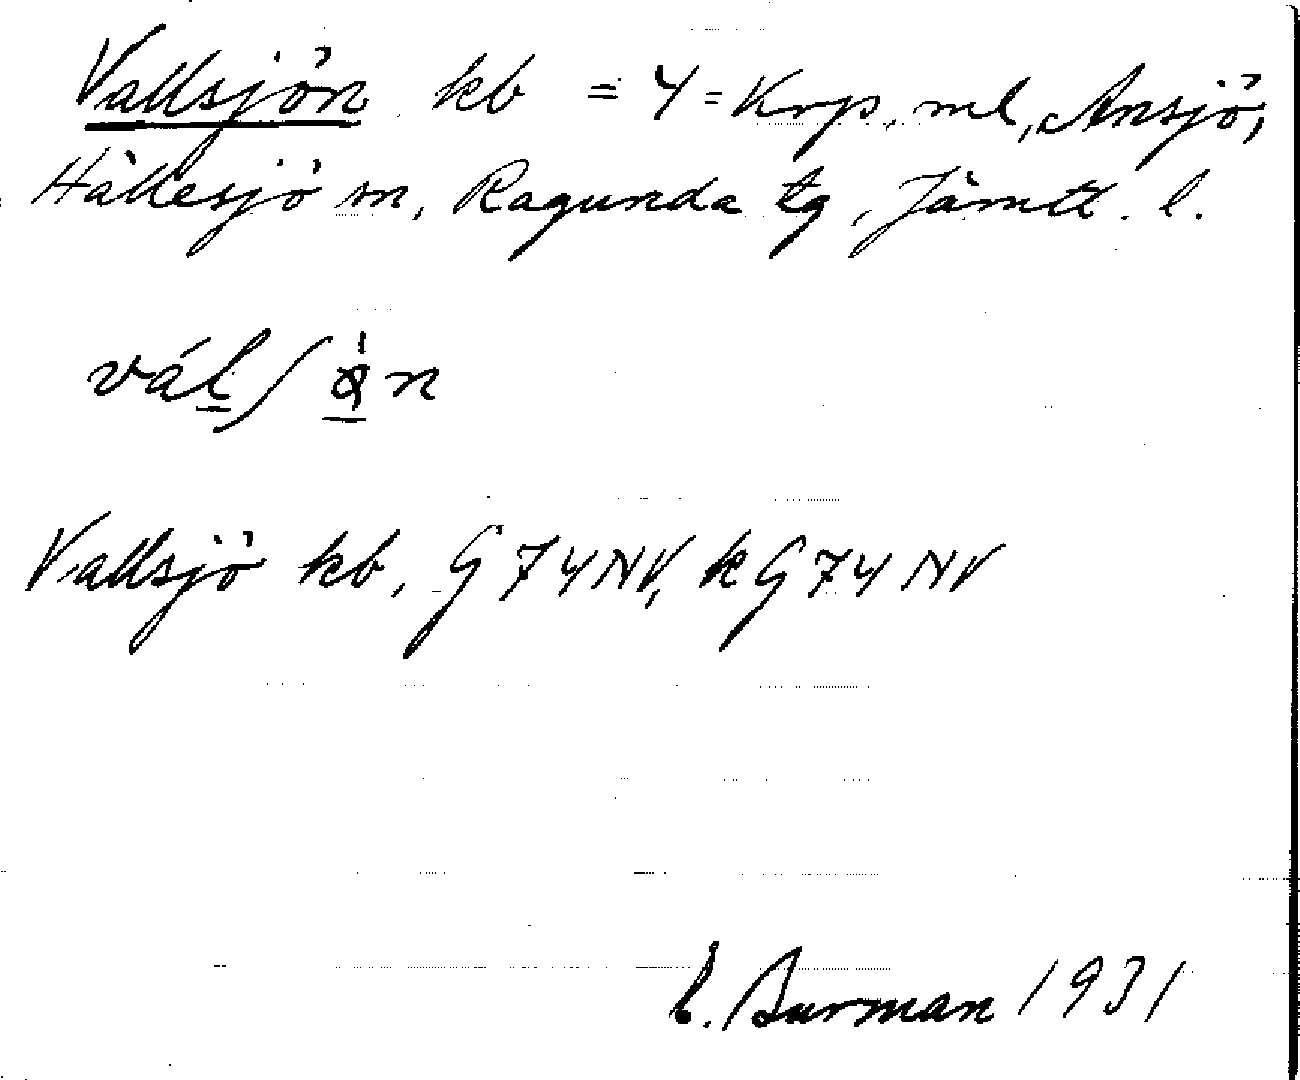 Vallsjön kb = 4 = Krp, ml, Ansjö,
Hällesjö sn, Ragunda tg, Jämtl. l.
vál/ n
Vallsjö kb, G 74 NV, k G 74 NV
E. Burman 1931